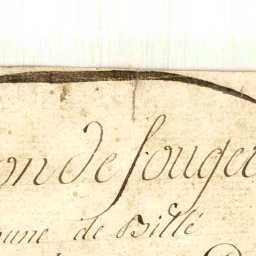 on de fouger
une de Billé